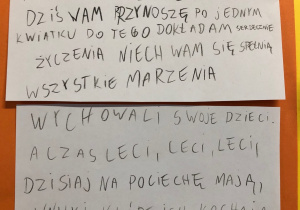 DZIŚ WAM PRZYNOSZĘ PO JEDNYM
KWIATKU DO TEGO DOKŁADAM SERDECZNE
ŻYCZENIA NIECH WAM SIĘ SPEŁNIĄ
WSZYSTKIE MARZENIA
WYCHOWALI SWOJE DZIECI.
A CZAS LECI, LECI, LECI,
DZISIAJ NA POCIECHĘ MAJĄ,